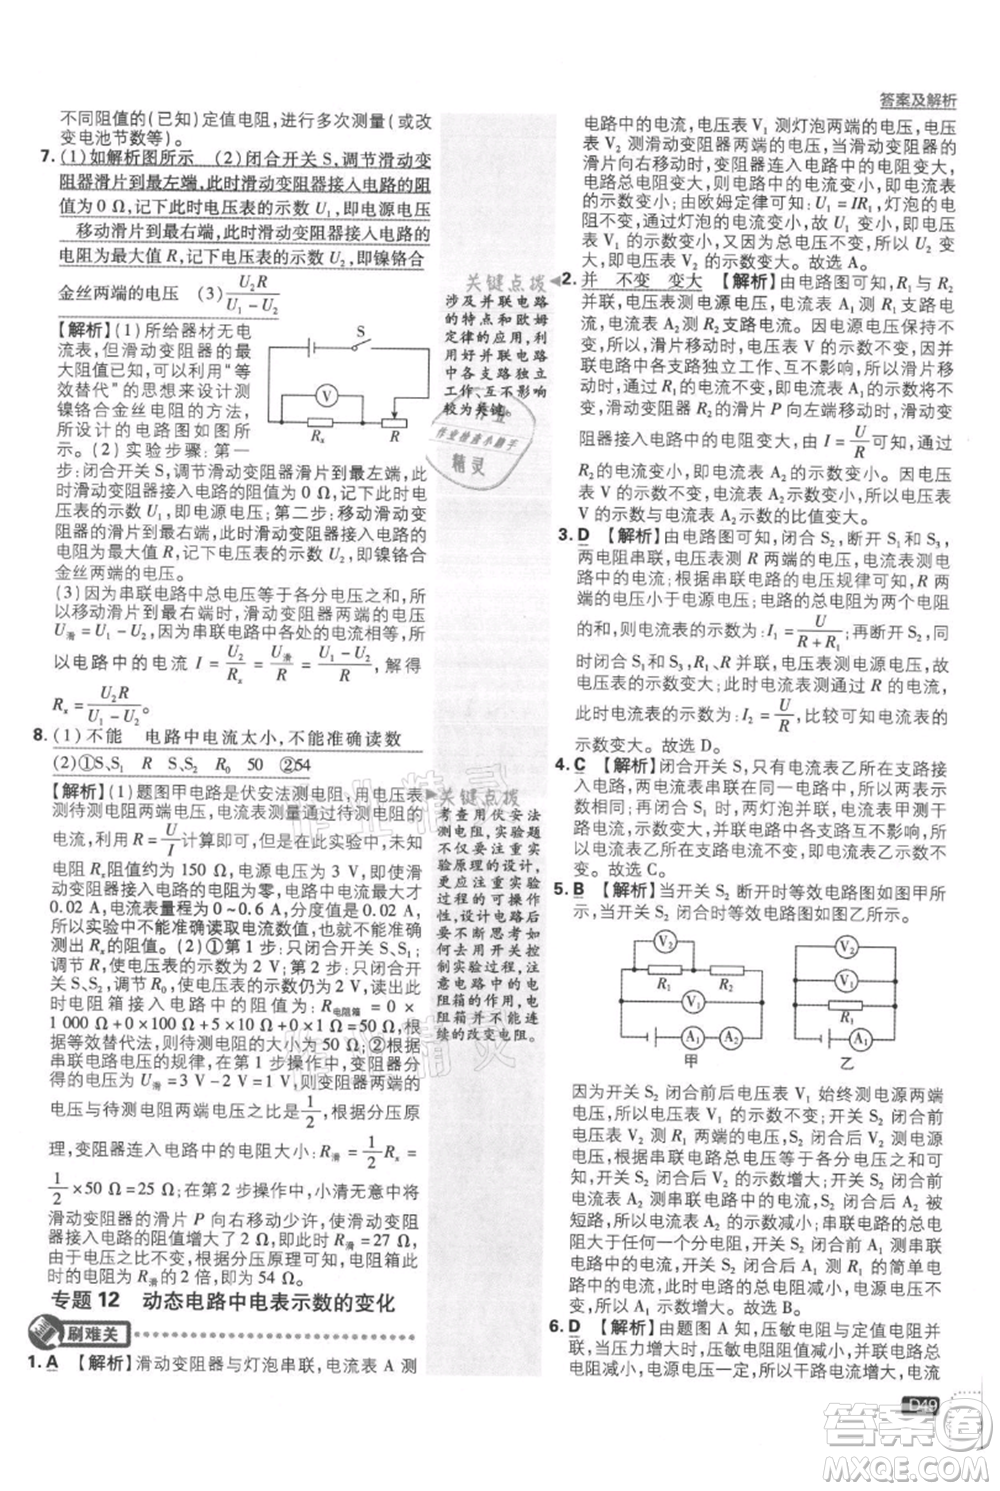 答案及解析
不同阻值的(已知)定值电阻,进行多次测量(或改
变电池节数等)。
7. (1)如解析图所示 (2)闭合开关 S,调节滑动变
阻器滑片到最左端,此时滑动变阻器接入电路的阻
值为 0 Ω,记下此时电压表的示数 U₁,即电源电压
移动滑片到最右端,此时滑动变阻器接入电路的
电阻为最大值 R,记下此时电压表的示数 U₂,即镍铬合
金丝两端的电压 (3) U₂R/(U₁－U₂)
【解析】(1)所给器材无电
流表,但滑动变阻器的最
大阻值已知,可以利用“等
效替代”的思想来设计测
镍铬合金丝电阻的方法,
所设计的电路图如图所
示。(2)实验步骤:第一
步:闭合开关 S,调节滑动变阻器滑片到最左端,此
时滑动变阻器接入电路的阻值为 0 Ω,记下此时电压
表的示数 U₁,即电源电压;第二步:移动滑片到最右
端,此时滑动变阻器接入电路的电阻为最大值
R,记下此时电压表的示数 U₂,即镍铬合
金丝两端的电压。
(3)因为串联电路中总电压等于各分电压之和,所
以移动滑片到最右端时,滑动变阻器两端的电压
U滑＝U₁－U₂,因为串联电路中各处的电流相等,所
以电路中的电流 I＝U₂/Rₓ＝U滑/R＝(U₁－U₂)/R,解得
Rₓ＝U₂R/(U₁－U₂)。
S
V
Rₓ
R
8. (1)不能 电路中电流太小,不能准确读数
(2)①S、S₁ R S、S₂ R₀ 50 ②54
【解析】(1)题图甲电路是伏安法测电阻,用电压表
测待测电阻两端电压、电流表测量通过待测电阻的
电流,用 R＝U/I 计算即可,但因为电源电压为
3 V,待测电阻约为 150 Ω,电源电压一定,即使将滑
动变阻器接入电路的电阻为零,电路中最大电流只有
0.02 A,电流表量程为 0～0.6 A,分度值是 0.02 A,
所以实验中不能准确读取电流数值,也就不能准确
测出 Rₓ 的阻值。(2)①第 1 步:只闭合开关 S、S₁,
调节 R,使电压表的示数为 2 V;第 2 步:只闭合开关
S、S₂,调节 R₀,使电压表的示数仍为 2 V,读出此
时电阻箱接入电路中的阻值为:R电阻箱＝0×
1 000 Ω＋0×100 Ω＋5×10 Ω＋0×1 Ω＝50 Ω,根据
等效替代法,所以待测电阻的阻值为 50 Ω;②根据
串联电路电压的规律,在第 1 步中,滑动变阻器分
得的电压为 U滑＝3 V－2 V＝1 V,即滑动变阻器两端
的电压为待测电阻两端电压的 1/2,根据分压原
理,变阻器连入电路中的电阻为:R滑＝1/2 Rₓ＝
1/2×50 Ω＝25 Ω;在第 2 步操作中,小清无意中将
滑动变阻器的滑片 P 向右移动少许,使滑动变阻器
连入电路中的电阻变大,此时 R滑＝27 Ω,故电阻箱
的示数是 R滑 的 2 倍,即为 54 Ω。
专题 12 动态电路中电表示数的变化
刷难关
1. A 【解析】滑动变阻器与灯泡串联,电流表 A 测
关键点拨
涉及并联电路
的特点和欧姆
定律的应用,利
用好并联电路
中各支路独立
工作、互不影响
较为关键。
关键点拨
考查用伏安法
测电阻,实验题
不仅要注重实
验原理的设计,
更应注重实验
过程的可操作
性,设计电路后
要不断思考如
何去用开关控
制实验过程,不
断思考电路中
电阻箱的作用,电
阻箱并不能连
续的改变电阻。
电路中的电流,电压表 V₁ 测灯泡两端的电压,电压表
V₂ 测滑动变阻器两端的电压。当滑动变阻器的滑
片向右移动时,变阻器连入电路中的电阻变大,电路
中的总电阻变大,此时电路的电流变小,即电流表 A
的示数变小;由欧姆定律可知:U₁＝IR₁,灯泡的电
阻不变,通过灯泡的电流变小,故 U₁ 变小,即电压
表 V₁ 的示数变小,电源电压不变,故 U₂ 变
大,即电压表 V₂ 的示数变大。故选 A。
2. 并 不变 变大 【解析】由电路图可知,R₁ 与 R₂
并联,电压表测电源电压,电流表 A₁ 测 R₁ 支路电
流,电流表 A₂ 测 R₂ 支路电流。因电源电压保持不
变,所以,滑片移动时,电压表的示数不变。因并
联电路中各支路独立工作、互不影响,所以滑片移
动时,通过 R₁ 支路的电流不变,即电流表 A₁ 的示数不
变。当滑动变阻器 R₂ 的滑片 P 向左移动时,变阻器
接入电路中的电阻变大,由 I＝U/R 可知,通过
R₂ 支路的电流变小,即电流表 A₂ 的示数变小。因电压
表 V 的示数不变,电流表 A₂ 的示数变小,所以电压表
V 的示数与电流表 A₂ 示数的比值变大。
3. D 【解析】由电路图可知,闭合 S₁,断开 S₂ 和 S₃ 时,
两电阻串联,电压表测 R 两端的电压,电流表测电
路中的电流;根据串联电路电压的规律可知,R 两端
的电压小于电源电压;总电阻为两个电阻
的和,则电流表的示数为:I₁＝U/(R＋R₁);再断开 S₂,
同时闭合 S₁ 和 S₃,R、R₁ 并联,电压表测电源电压,即
电压表的示数变大;电流表测通过 R 的电流,
此时电流表的示数为:I₂＝U/R,比较可知电流表的
示数变大。故选 D。
4. C 【解析】闭合开关 S,只有电流表乙所在的电路接
通,电流表乙与灯泡串联在同一电路中,此时两表示数
相同;再闭合开关 S₁ 时,两灯泡并联,电流表甲测干
路电流,因并联电路中各支路互不影响,所以电流表
乙所在支路电流不变,即电流表乙示数不变,干
路电流变大,即电流表甲示数变大。故选 C。
5. B 【解析】当开关 S₂ 断开时等效电路图如图甲所
示,当开关 S₂ 闭合时等效电路图如图乙所示。
V₂
R₁
V₁
A₁
A₂
甲
V₂
V₁
R₁
A₁
A₂
乙
因为开关 S₂ 闭合前后电压表 V₁ 始终测电源两端电
压,故电压表 V₁ 的示数不变;开关 S₂ 闭合前
电压表 V₂ 测 R₁ 两端的电压,开关 S₂ 闭合后 V₂ 测电源
电压,由串联电路电压规律可知,开关 S₂ 闭
合后电压表 V₂ 的示数增大;开关 S₂ 闭合前
电流表 A₂ 测串联电路中的电流,开关 S₂ 闭合后 A₂ 被
短路,所以电流表 A₂ 的示数减小;电路总电阻由原
来的串联变为只有一个电阻,开关 S₂
闭合后电路为只有 R₁ 的简单电路,
电阻减小,电源电压不变,所以电流表 A₁ 的示数增大。故选 B。
6. D 【解析】由题图 A 知,压敏电阻与定值电阻并
联,当压力增大时,压敏电阻阻值减小,总电阻减
小,电源电压一定,所以干路电流增大,电流
D49
作业精灵
作业检查小助手
答案圈
MXQE.COM